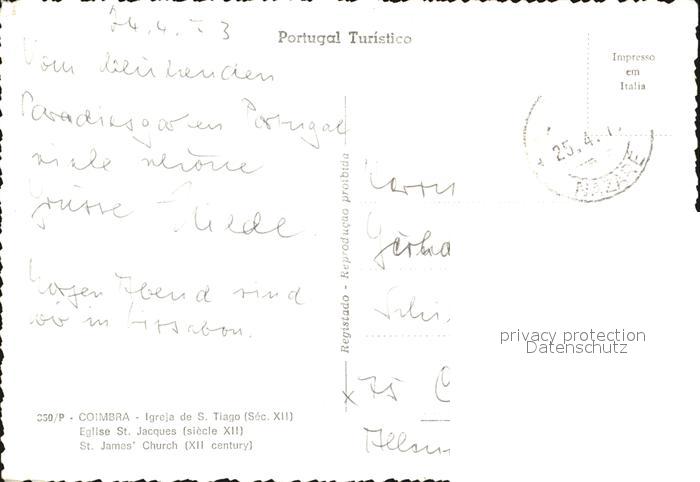 24.4.73
Portugal Turístico
Impresso
em
Italia
Vom blühenden
Paradiesgarten Portugal
viele schöne
Grüsse
25.4.
NAZARÉ
Morgen Abend sind
wir in Lissabon.
Registado - Reprodução proibida
privacy protection
Datenschutz
x 75
350/P - COIMBRA - Igreja de S. Tiago (Séc. XII)
Eglise St. Jacques (siècle XII)
St. James' Church (XII century)